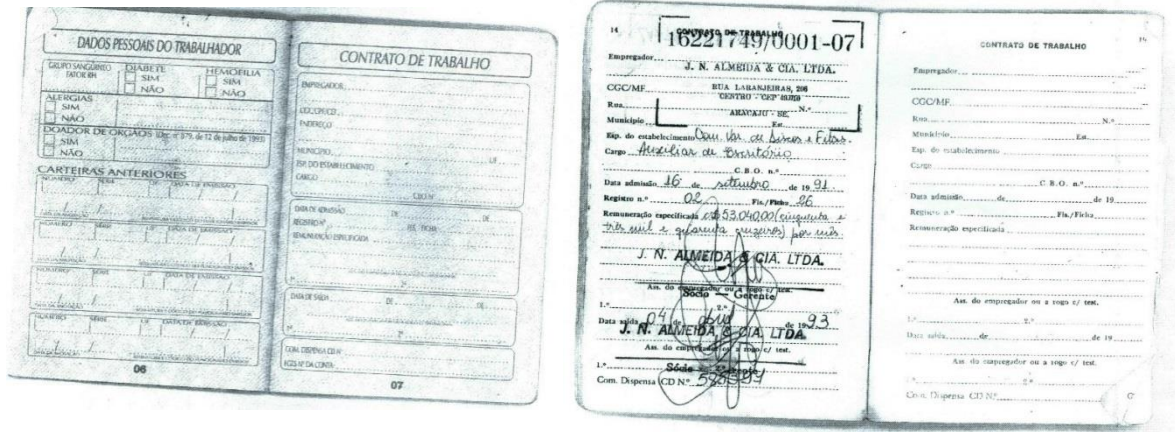 DADOS PESSOAIS DO TRABALHADOR
GRUPO SANGÜINEO
FATOR RH
DIABETE
SIM
NÃO
HEMOFILIA
SIM
NÃO
ALERGIAS
SIM
NÃO
DOADOR DE ORGÃOS (Dec. nº 879, de 12 de julho de 1993)
SIM
NÃO
CARTEIRAS ANTERIORES
NÚMERO SÉRIE UF DATA DE EMISSÃO
NÚMERO SÉRIE UF DATA DE EMISSÃO
NÚMERO SÉRIE UF DATA DE EMISSÃO
NÚMERO SÉRIE UF DATA DE EMISSÃO
06
CONTRATO DE TRABALHO
EMPREGADOR
ENDEREÇO
MUNICÍPIO UF
ESP. DO ESTABELECIMENTO
CARGO
CBO Nº
DATA DE ADMISSÃO DE DE
REGISTRO Nº FLS. FICHA
REMUNERAÇÃO ESPECIFICADA
1º 2º
DATA DE SAÍDA DE DE
1º 2º
COM. DISPENSA CD Nº
FGTS Nº DA CONTA
07
14
CONTRATO DE TRABALHO
16221749/0001-07
Empregador
J. N. ALMEIDA & CIA. LTDA.
CGC/MF RUA LARANJEIRAS, 206
CENTRO - CEP
Rua N.º
ARACAJU - SE.
Município Est.
Esp. do estabelecimento Com. Var. de Discos e Fitas.
Cargo Auxiliar de Escritório
C.B.O. n.º
Data admissão 16 de setembro de 1991
Registro n.º 02 Fls./Ficha 26
Remuneração especificada cr$ 53.040,00 (cinquenta e
três mil e quarenta cruzeiros) por mês.
J. N. ALMEIDA & CIA. LTDA.
Ass. do empregador ou a rogo c/ test.
Sócio — Gerente
1.º 2.º
Data saída 04 de abril de 1993
J. N. ALMEIDA & CIA. LTDA.
Ass. do empregador ou a rogo c/ test.
1.º Sócio — Gerente
Com. Dispensa CD N.º
CONTRATO DE TRABALHO
Empregador
CGC/MF
Rua N.º
Município Est.
Esp. do estabelecimento
Cargo
C.B.O. n.º
Data admissão de de 19
Registro n.º Fls./Ficha
Remuneração especificada
Ass. do empregador ou a rogo c/ test.
1.º 2.º
Data saída de de 19
Ass. do empregador ou a rogo c/ test.
1.º 2.º
Com. Dispensa CD N.º